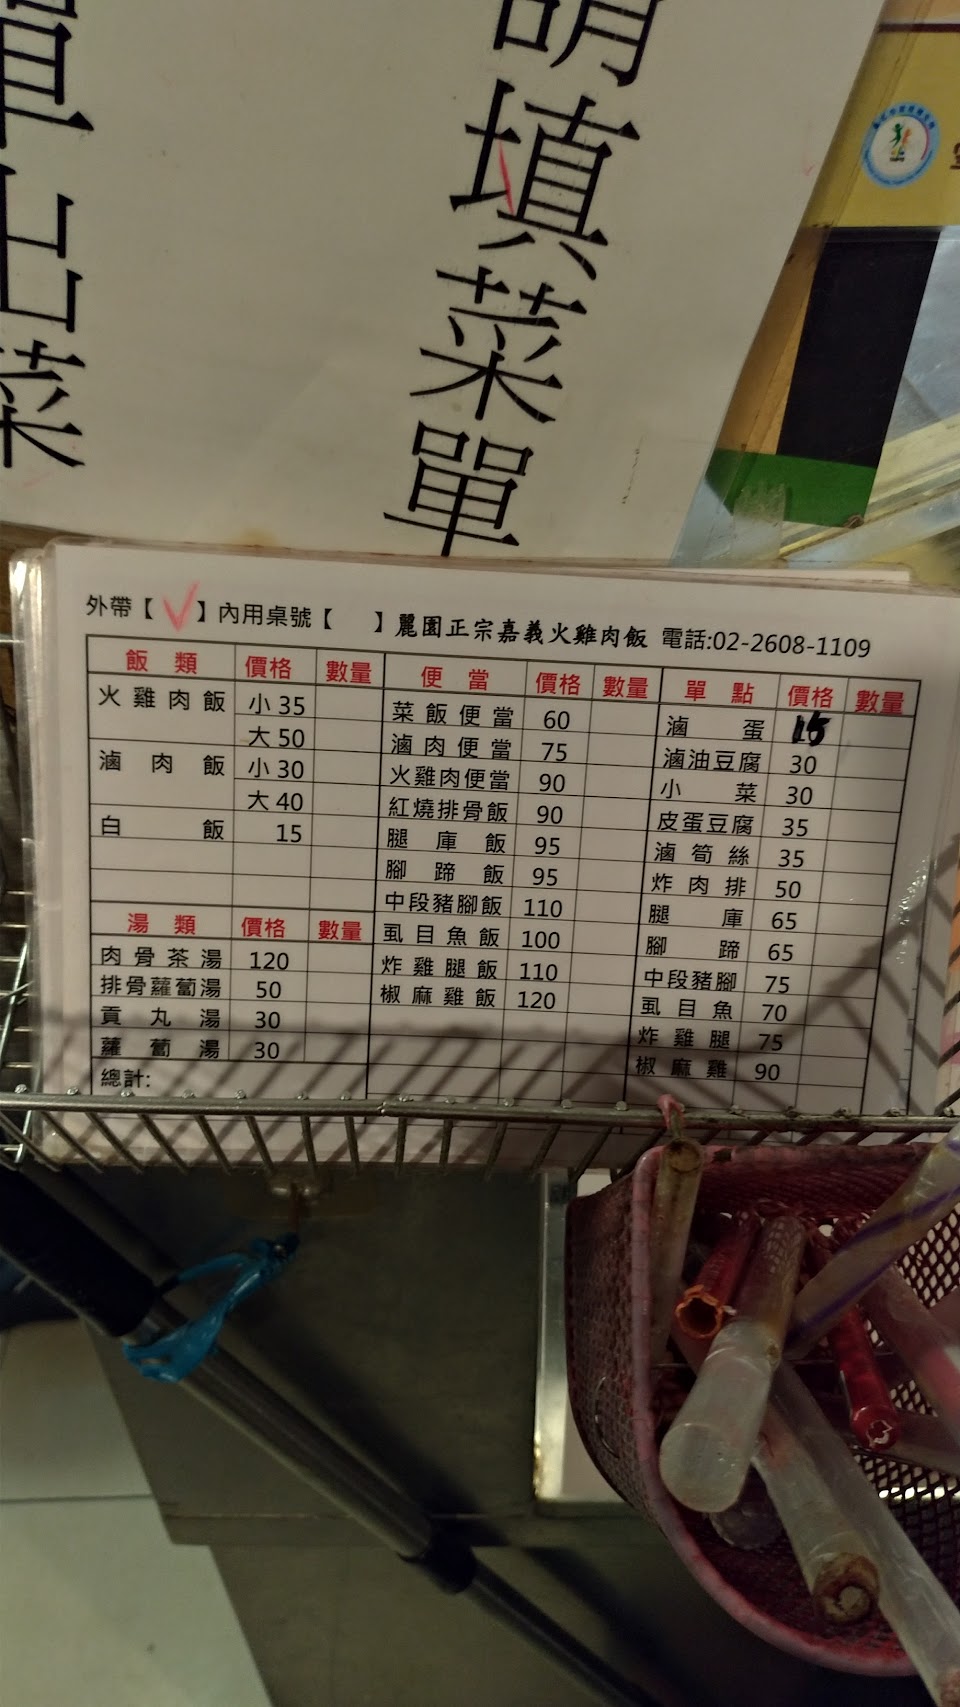 請填菜單
單出菜
外帶【✓】內用桌號【 】麗園正宗嘉義火雞肉飯 電話:02-2608-1109
飯類 價格 數量
火雞肉飯 小 35
大 50
滷肉飯 小 30
大 40
白飯 15
湯類 價格 數量
肉骨茶湯 120
排骨蘿蔔湯 50
貢丸湯 30
蘿蔔湯 30
總計:
便當 價格 數量
菜飯便當 60
滷肉便當 75
火雞肉便當 90
紅燒排骨飯 90
腿庫飯 95
腳蹄飯 95
中段豬腳飯 110
虱目魚飯 100
炸雞腿飯 110
椒麻雞飯 120
單點 價格 數量
滷蛋 15
滷油豆腐 30
小菜 30
皮蛋豆腐 35
滷筍絲 35
炸肉排 50
腿庫 65
腳蹄 65
中段豬腳 75
虱目魚 70
炸雞腿 75
椒麻雞 90